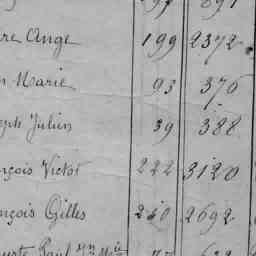 re Ange 199 2372
n Marie 93 376
eph Julien 39 388
nçois Victor 222 3120
nçois Gilles 240 2692
uste Paul